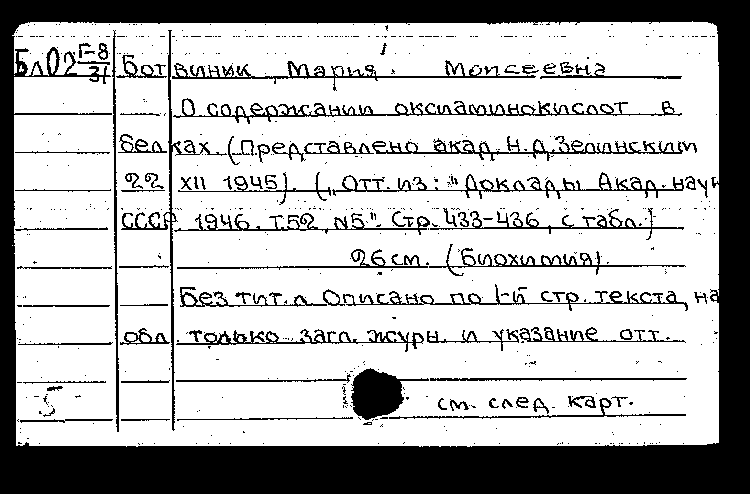 Бл02 Г-8/31 Ботвиник Мария Моисеевна
О содержании оксиаминокислот в
белках. (Представлено акад. Н.Д.Зелинским
22 XII 1945). („Отт. из: "Доклады Акад. наук
СССР. 1946. Т.52, N5". Стр. 433-436, с табл.]
26 см. (Биохимия).
Без тит. л. Описано по 1-й стр. текста, на
обл. только загл. журн. и указание отт.
5 см. след. карт.